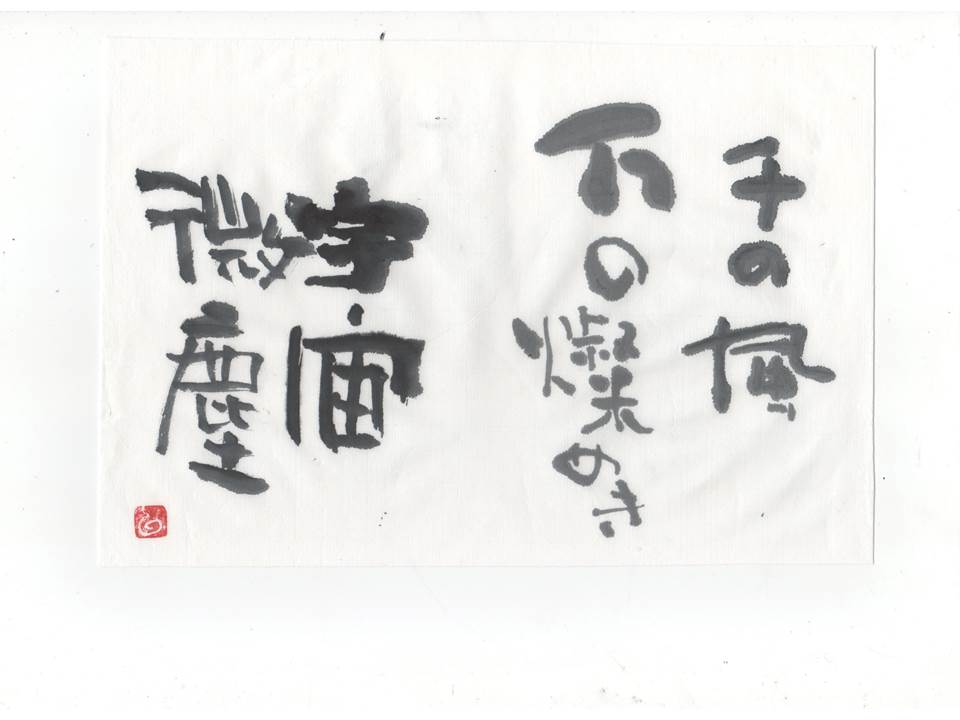 千の風
万の燦めき
宇宙
微塵